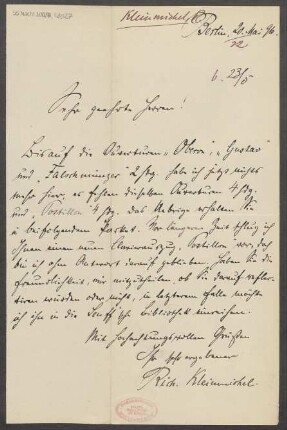 Kleinmichel
Berlin, 20. Mai 96.
b. 23/5
Sehr geehrte Herren!
Bis auf die Ouverturen „Oberon“, „Gustav“
und „Falschmünzer“ 2hdg habe ich jetzt nichts
mehr hier, es fehlen dieselben Ouverturen 4 hdg.
und „Postillon“ 4 hdg. das Uebrige erhalten Sie
in beifolgendem Packet. Vor langerer Zeit schlug ich
Ihnen einen neuen Clavierauszug, Postillon vor, doch
bin ich ohne Antwort darauf geblieben. Haben Sie die
Freundlichkeit, mir mitzutheilen ob Sie darauf reflec-
tiren würden oder nicht, in letzterem Falle möchte
ich ihn in die Senff'sche Bibliothek einreihen.
Mit hochachtungsvollen Grüßen
Ihr sehr ergebener
Rich. Kleinmichel.